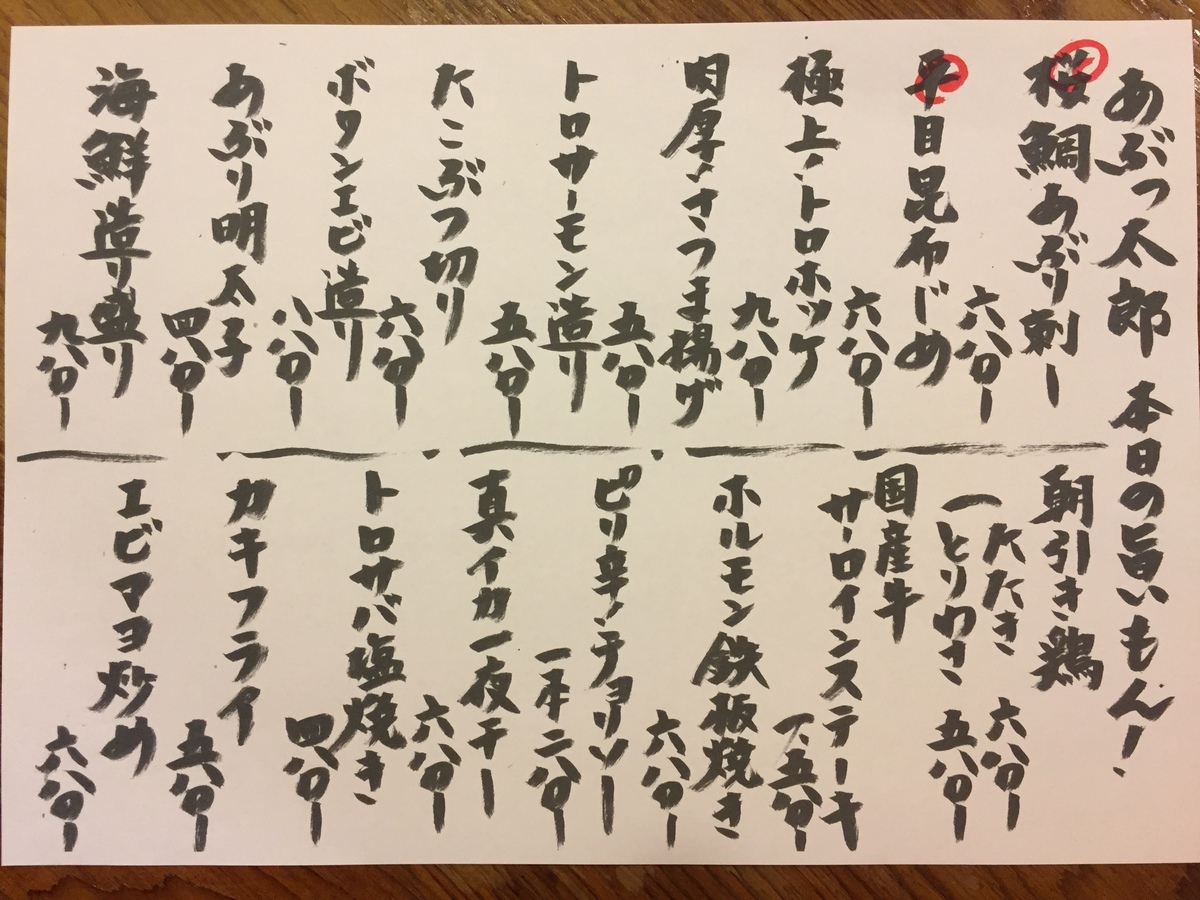 あぶっ太郎 本日の旨いもん!
桜鯛あぶり刺し
六八〇ー
平目昆布じめ
六八〇ー
極上トロホッケ
九八〇ー
肉厚さつま揚げ
五八〇ー
トロサーモン造り
五八〇ー
たこぶつ切り
六八〇ー
ボタンエビ造り
八八〇ー
あぶり明太子
四八〇ー
海鮮造り盛り
九八〇ー
朝引き鶏
たたき 六八〇ー
とりわさ 五八〇ー
国産牛
サーロインステーキ
一、五八〇ー
ホルモン鉄板焼き
六八〇ー
ピリ辛チョリソー
一本二八〇ー
真イカ一夜干し
六八〇ー
トロサバ塩焼き
四八〇ー
カキフライ
五八〇ー
エビマヨ炒め
六八〇ー